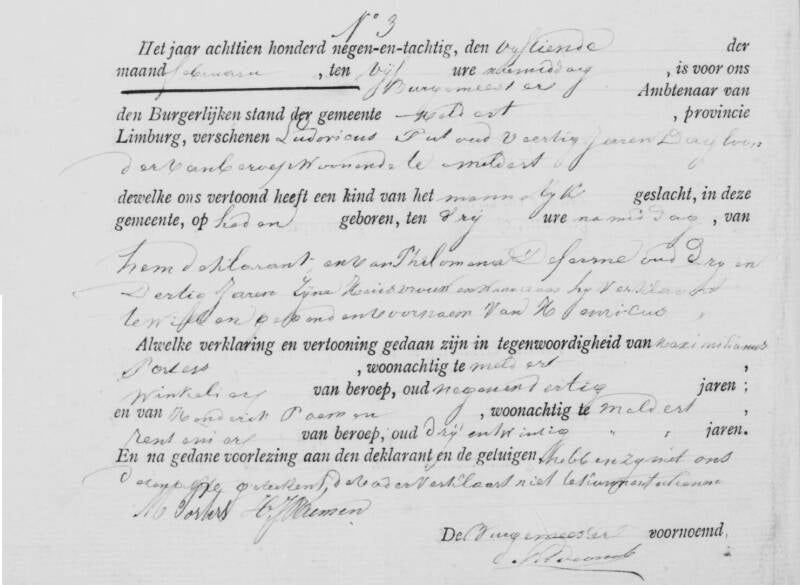 N° 3
Het jaar achttien honderd negen-en-tachtig, den vijftiende der
maand februari, ten vijf ure namiddag, is voor ons
Burgemeester Ambtenaar van
den Burgerlijken stand der gemeente Meldert, provincie
Limburg, verschenen Ludovicus Put oud Veertig Jaren Dagloon
der van beroep Woonende te meldert
dewelke ons vertoond heeft een kind van het mannelyk geslacht, in deze
gemeente, op heden geboren, ten dry ure namiddag, van
hem deklarant, en van Philomena Deferme oud Dry en
Dertig Jaren Zyne Huisvrouw en waar aan hy Verklaart
te Willen geven den voornaam Van Henricus
Alwelke verklaring en vertooning gedaan zijn in tegenwoordigheid van Maximilianus
Porters, woonachtig te meldert
Winkelier van beroep, oud negenendertig jaren;
en van Henderik Paemen, woonachtig te Meldert,
Rentenier van beroep, oud Dry en Twintig jaren.
En na gedane voorlezing aan den deklarant en de getuigen, hebben zy met ons
deze akte geteekent, de vader Verklaart niet te kunnen
M Porters H J Paemen
De Burgemeester voornoemd,